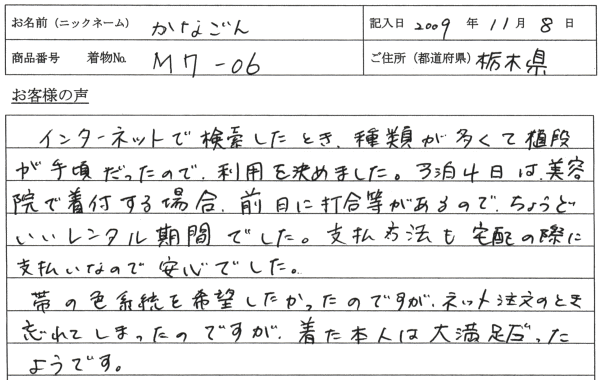 お名前（ニックネーム） かなごん 記入日 2009 年 11 月 8 日
商品番号 着物No. M17-06 ご住所（都道府県） 栃木県
お客様の声
インターネットで検索したとき、種類が多くて値段
が手頃だったので、利用を決めました。3泊4日は、美容
院で着付する場合、前日に打合等があるので、ちょうど
いいレンタル期間でした。支払方法も宅配の際に
支払いなので安心でした。
帯の色系統を希望したかったのですが、ネット注文のとき
忘れてしまったのですが、着た本人は大満足だった
ようです。